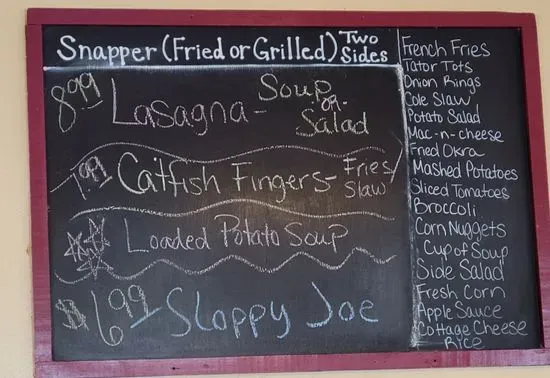 Snapper (Fried or Grilled) Two Sides
8.99 Lasagna - Soup or Salad
7.99 Catfish Fingers - Fries/Slaw
Loaded Potato Soup
$6.99 Sloppy Joe
French Fries
Tator Tots
Onion Rings
Cole Slaw
Potato Salad
Mac-n-cheese
Fried Okra
Mashed Potatoes
Sliced Tomatoes
Broccoli
Corn Nuggets
Cup of Soup
Side Salad
Fresh Corn
Apple Sauce
Cottage Cheese
Rice